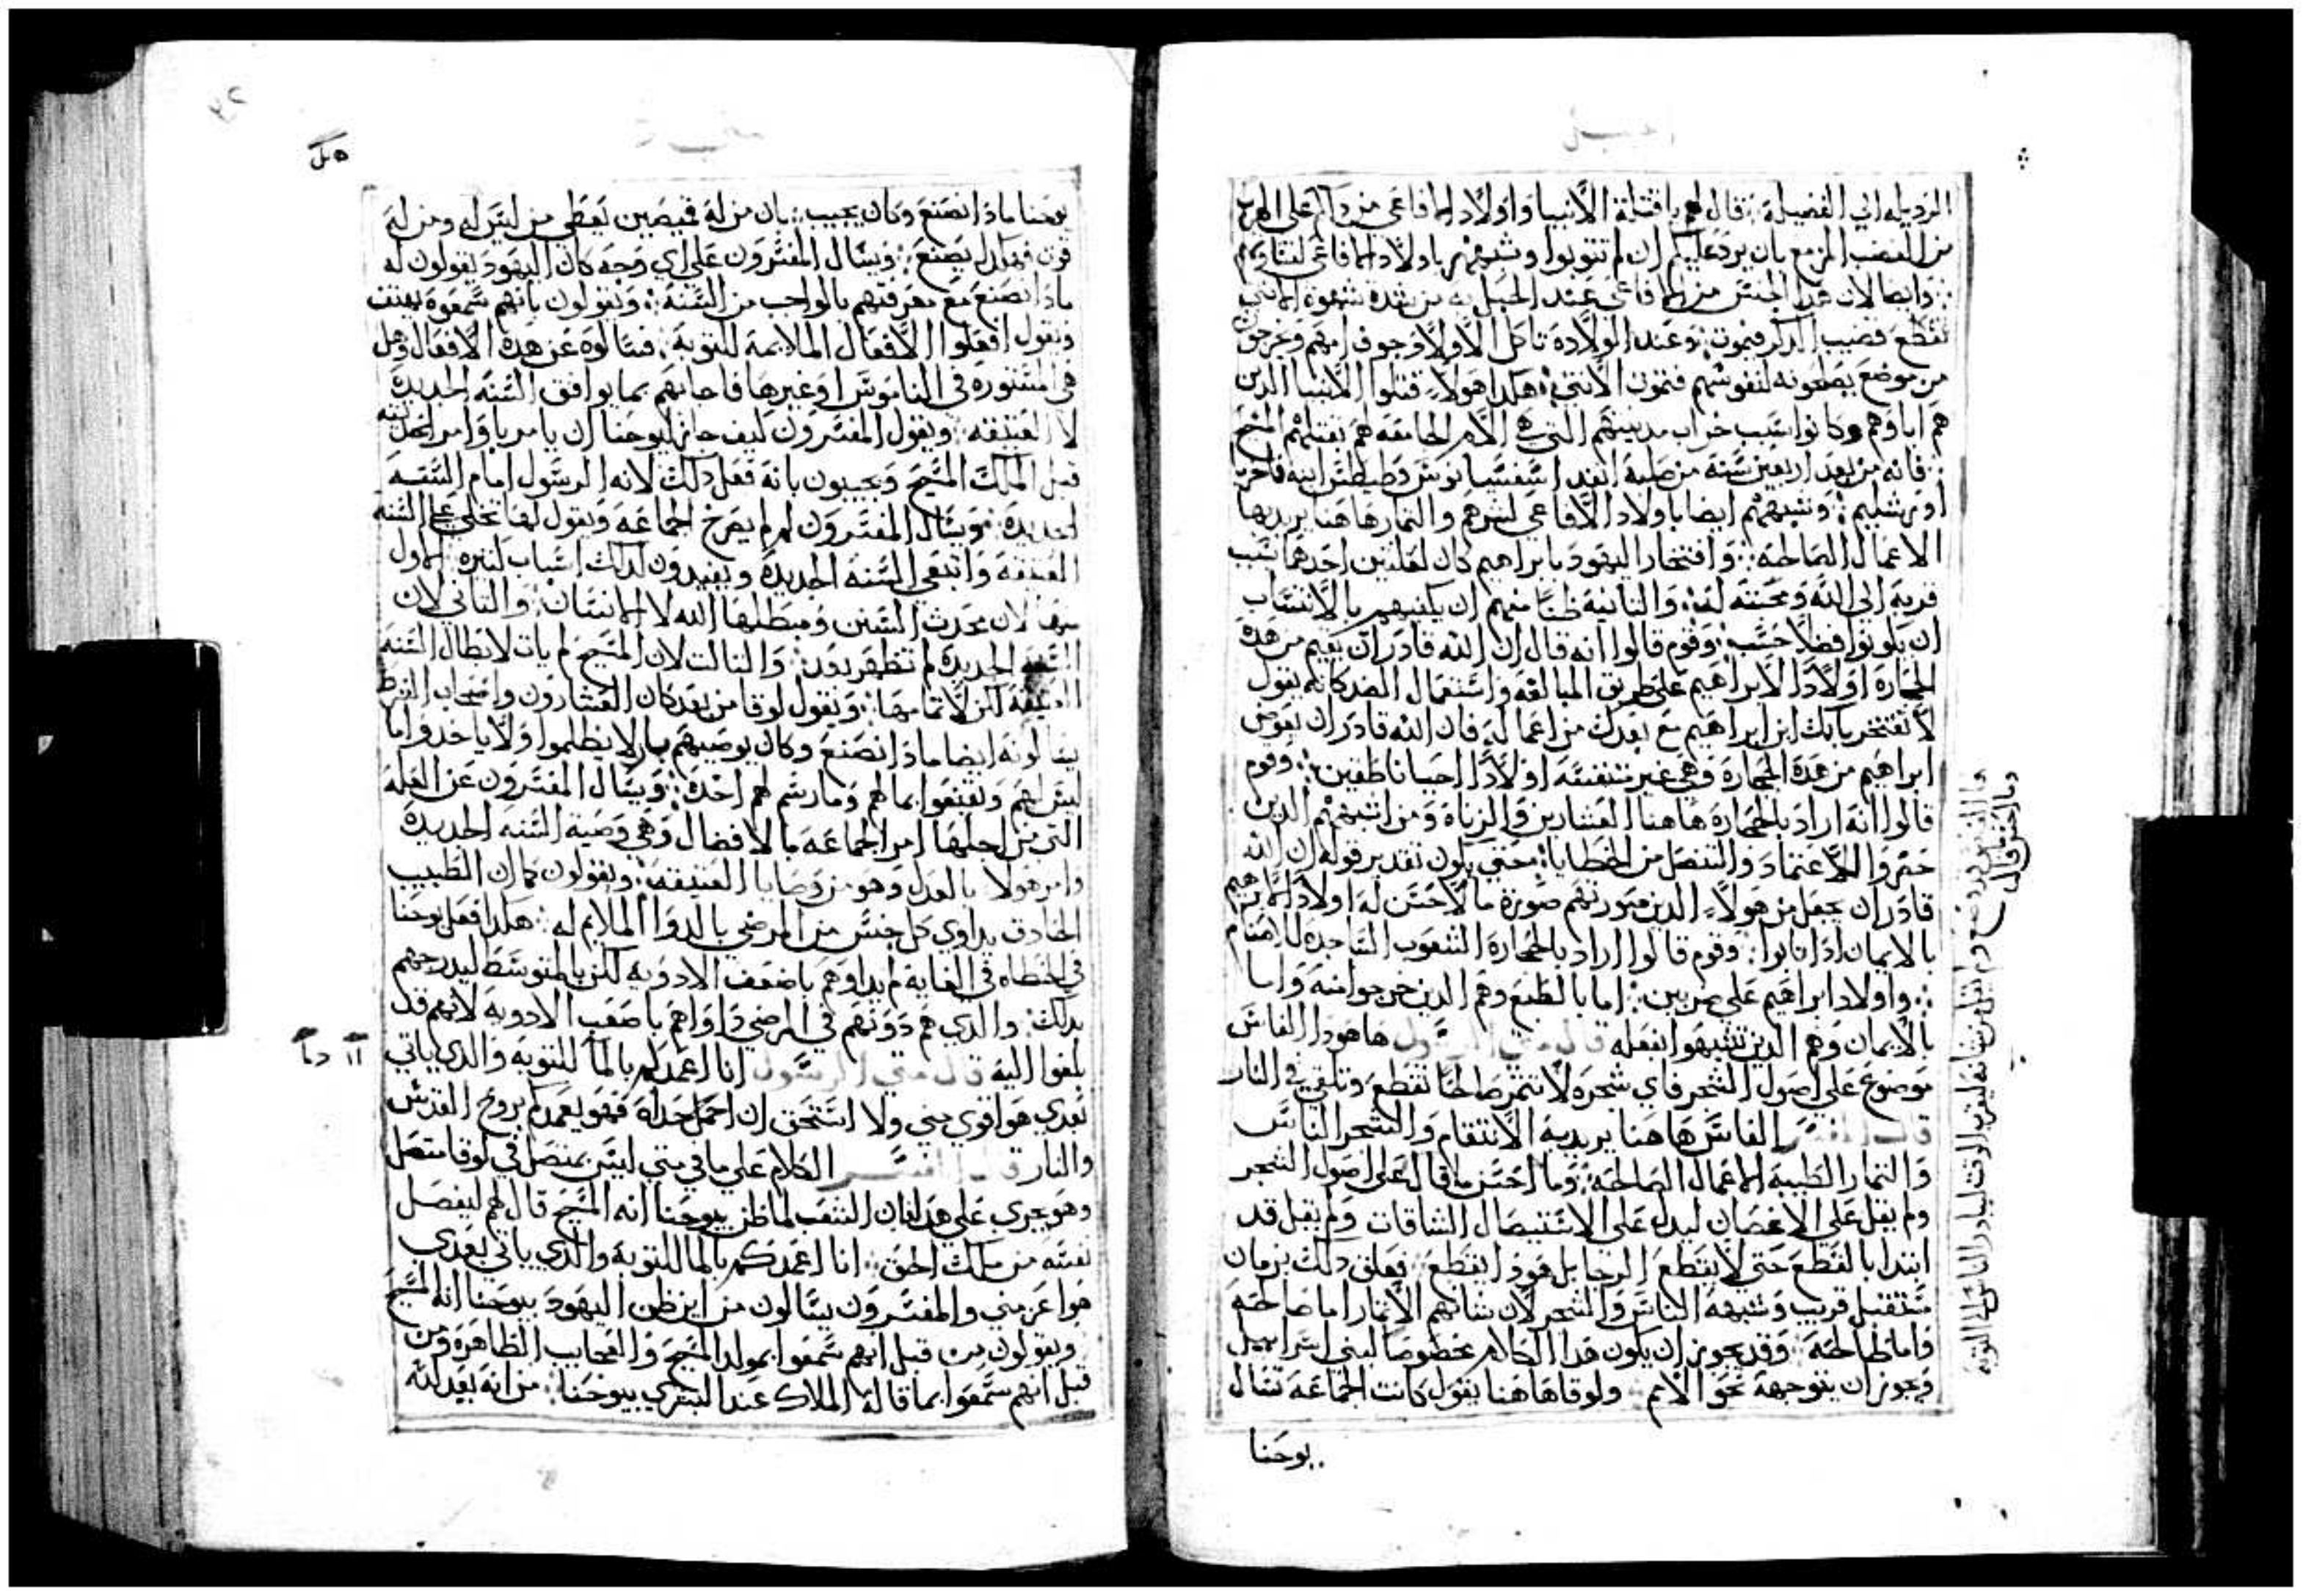 انجيل
الرذيله الي الفضيلة ⁘ قال لهم يا قتلة الانبيا واولاد الافاعي من دلكم علي الهرب
من الغضب المزمع بان يرد عليكم ان لم تتوبوا وشبههم باولاد الافاعي لتناوهم
⁘ وايضا لان هدا الجنس من الافاعي عند الحبل به من شدة شهوة الانثي
تقطع قضيب الدكر فيموت ⁘ وعند الولادة تاكل الاولاد جوف امهم وتخرجون
من موضع يصلحونه لنفوسهم فتموت الانثي ⁘ هكدا هولاء قتلوا الانبيا الدين
هم اباوهم وكانوا سبب خراب مدينتهم التي هي الام الجامعة لهم بقتلهم المسيح
⁘ فانه من بعد اربعين سنة من صلبه انفد اسفسيانوس وطيطس ابنه فاخربا
اورشليم ⁘ وشبههم ايضا باولاد الافاعي لشرهم والثمار هاهنا يريد بها
الاعمال الصالحة ⁘ وافتخار اليهود بابراهيم كان لعلتين احدهما بسبب
قربه الي الله ومحبته له ⁘ والثانية ظنا منهم ان يكفيهم بالانتساب
ان يكونوا فضلا حسب ⁘ وقوم قالوا انه قال ان الله قادر ان يقيم من هدة
الحجارة اولادا لابراهيم علي طريق المبالغة واستعمال الضد كانه يقول
لا تفتخر بانك ابن ابراهيم مع بعدك من اعماله فان الله قادر ان يعوض
ابراهيم من هدة الحجارة وهي غير متنفسة اولادا احيا ناطقين ⁘ وقوم
قالوا انه اراد بالحجارة هاهنا العشارين والزناة ومن اشبههم الدين
حضروا للاعتماد والتنصل من الخطايا ⁘ حتي يكون تقدير قوله ان الله
قادر ان يجعل من هولاء الدين صورتهم صورة ما لا حس له اولاد لابراهيم
بالايمان ادا تابوا ⁘ وقوم قالوا اراد بالحجارة الشعوب الساجدة للاصنام
⁘ واولاد ابراهيم علي ضربين ⁘ اما بالطبع وهم الدين خرجوا منه واما
بالايمان وهم الدين تشبهوا بفعله قال متي الرسول ها هودا الفاس
موضوع علي اصول الشجر فاي شجرة لا تثمر صالحا تقطع وتلقي في النار
قال المفسر الفاس هاهنا يريد به الانتقام والشجر الناس
والثمار الطيبة الاعمال الصالحة ⁘ وما احسن ما قال علي اصول الشجر
ولم يقل علي الاغصان ليدل علي الاستيصال الشاقات ولم يقل قد
ابتدا بالقطع حتي لا ينقطع الرجا بل هودا ينقطع ⁘ فعلق دلك بزمان
مستقبل قريب وشبهه الناس والشجر لان شانهم الاثمار اما صالحة
واما طالحة ⁘ وقد يجوز ان يكون هدا الكلام مخصوصا لبني اسراييل
ويجوز ان يتوجهه نحو الامم ⁘ ولوقا هاهنا يقول كانت الجماعة تسال
يوحنا
وما احسن قال
يوحنا مادا نصنع وكان يجيب ⁘ بان من له قميصين يعطي من ليس له ومن له
قوت فهكدا يصنع ⁘ ويسال المفسرون علي اي وجه كان اليهود يقولون له
مادا نصنع مع معرفتهم بالواجب من السنة ⁘ ويقولون بانهم سمعوة يهتف
ويقول افعلوا الافعال الملايمة للتوبة ⁘ فسالوة عن هدة الافعال وهل
هي مسنونة في الناموس او غيرها فاجابهم بما يوافق السنة الجديدة
لا العتيقة ⁘ ويقول المفسرون كيف جاز ليوحنا ان يامر باوامر الجديدة
قبل الملك المسيح ويجيبون بانه فعل دلك لانه الرسول امام السنة
الجديدة ⁘ ويسال المفسرون لم لم يصرخ الجماعة ويقول لها تخلي علي السنة
العتيقة واتبعي السنة الجديدة ويفيدون لدلك اسباب كثيرة الاول
منها لان محدث السنن ومبطلها الله لا الانسان ⁘ والثاني لان
السنة الجديدة لم تظهر بعد ⁘ والثالث لان المسيح لم يات لابطال السنة
العتيقة لكن لاتمامها ⁘ ويقول لوقا من بعد كان العشارون واصحاب الشرط
يسالونه ايضا مادا نصنع وكان يوصيهم بان لا يظلموا ولا ياخدوا ما
ليس لهم ويقنعوا بما لهم وما رسم لهم اخدة ⁘ ويسال المفسرون عن العلة
التي من اجلها امر الجماعة بالافضال وهي وصية السنة الجديدة
وامر هولا بالعدل وهو من وصايا العتيقة ⁘ ويقولون كما ان الطبيب
الحادق يداوي كل جنس من المرضي بالدوا الملايم له ⁘ هكدا فعل يوحنا
في الخطاة في الغاية لم يداوهم باضعف الادوية لكن بالمتوسط ليدرجهم
بدلك ⁘ والدي هم دونهم في المرضي داواهم باصعب الادوية لانهم قد
بلغوا اليه قال متي الرسول انا اعمدكم بالما للتوبة والدي ياتي
بعدي هو اقوي مني ولا استحق ان احمل حداه فهو يعمدكم بروح القدس
والنار قال المفسر الكلام علي ما في متي ليس بمتصل وفي لوقا متصل
وهو يجري علي هدا فان الشعب لما ظن بيوحنا انه المسيح قال لهم ليفصل
نفسه من ملك الحق ⁘ انا اعمدكم بالما للتوبة والدي ياتي بعدي
هو اعز مني والمفسرون يسالون من اين ظن اليهود بيوحنا انه المسيح
ويقولون من قبل انهم سمعوا بمولد المسيح والعجايب الظاهرة ومن
قبل انهم سمعوا بما قاله الملاك عند البشري بيوحنا ⁘ من انه يعد لله